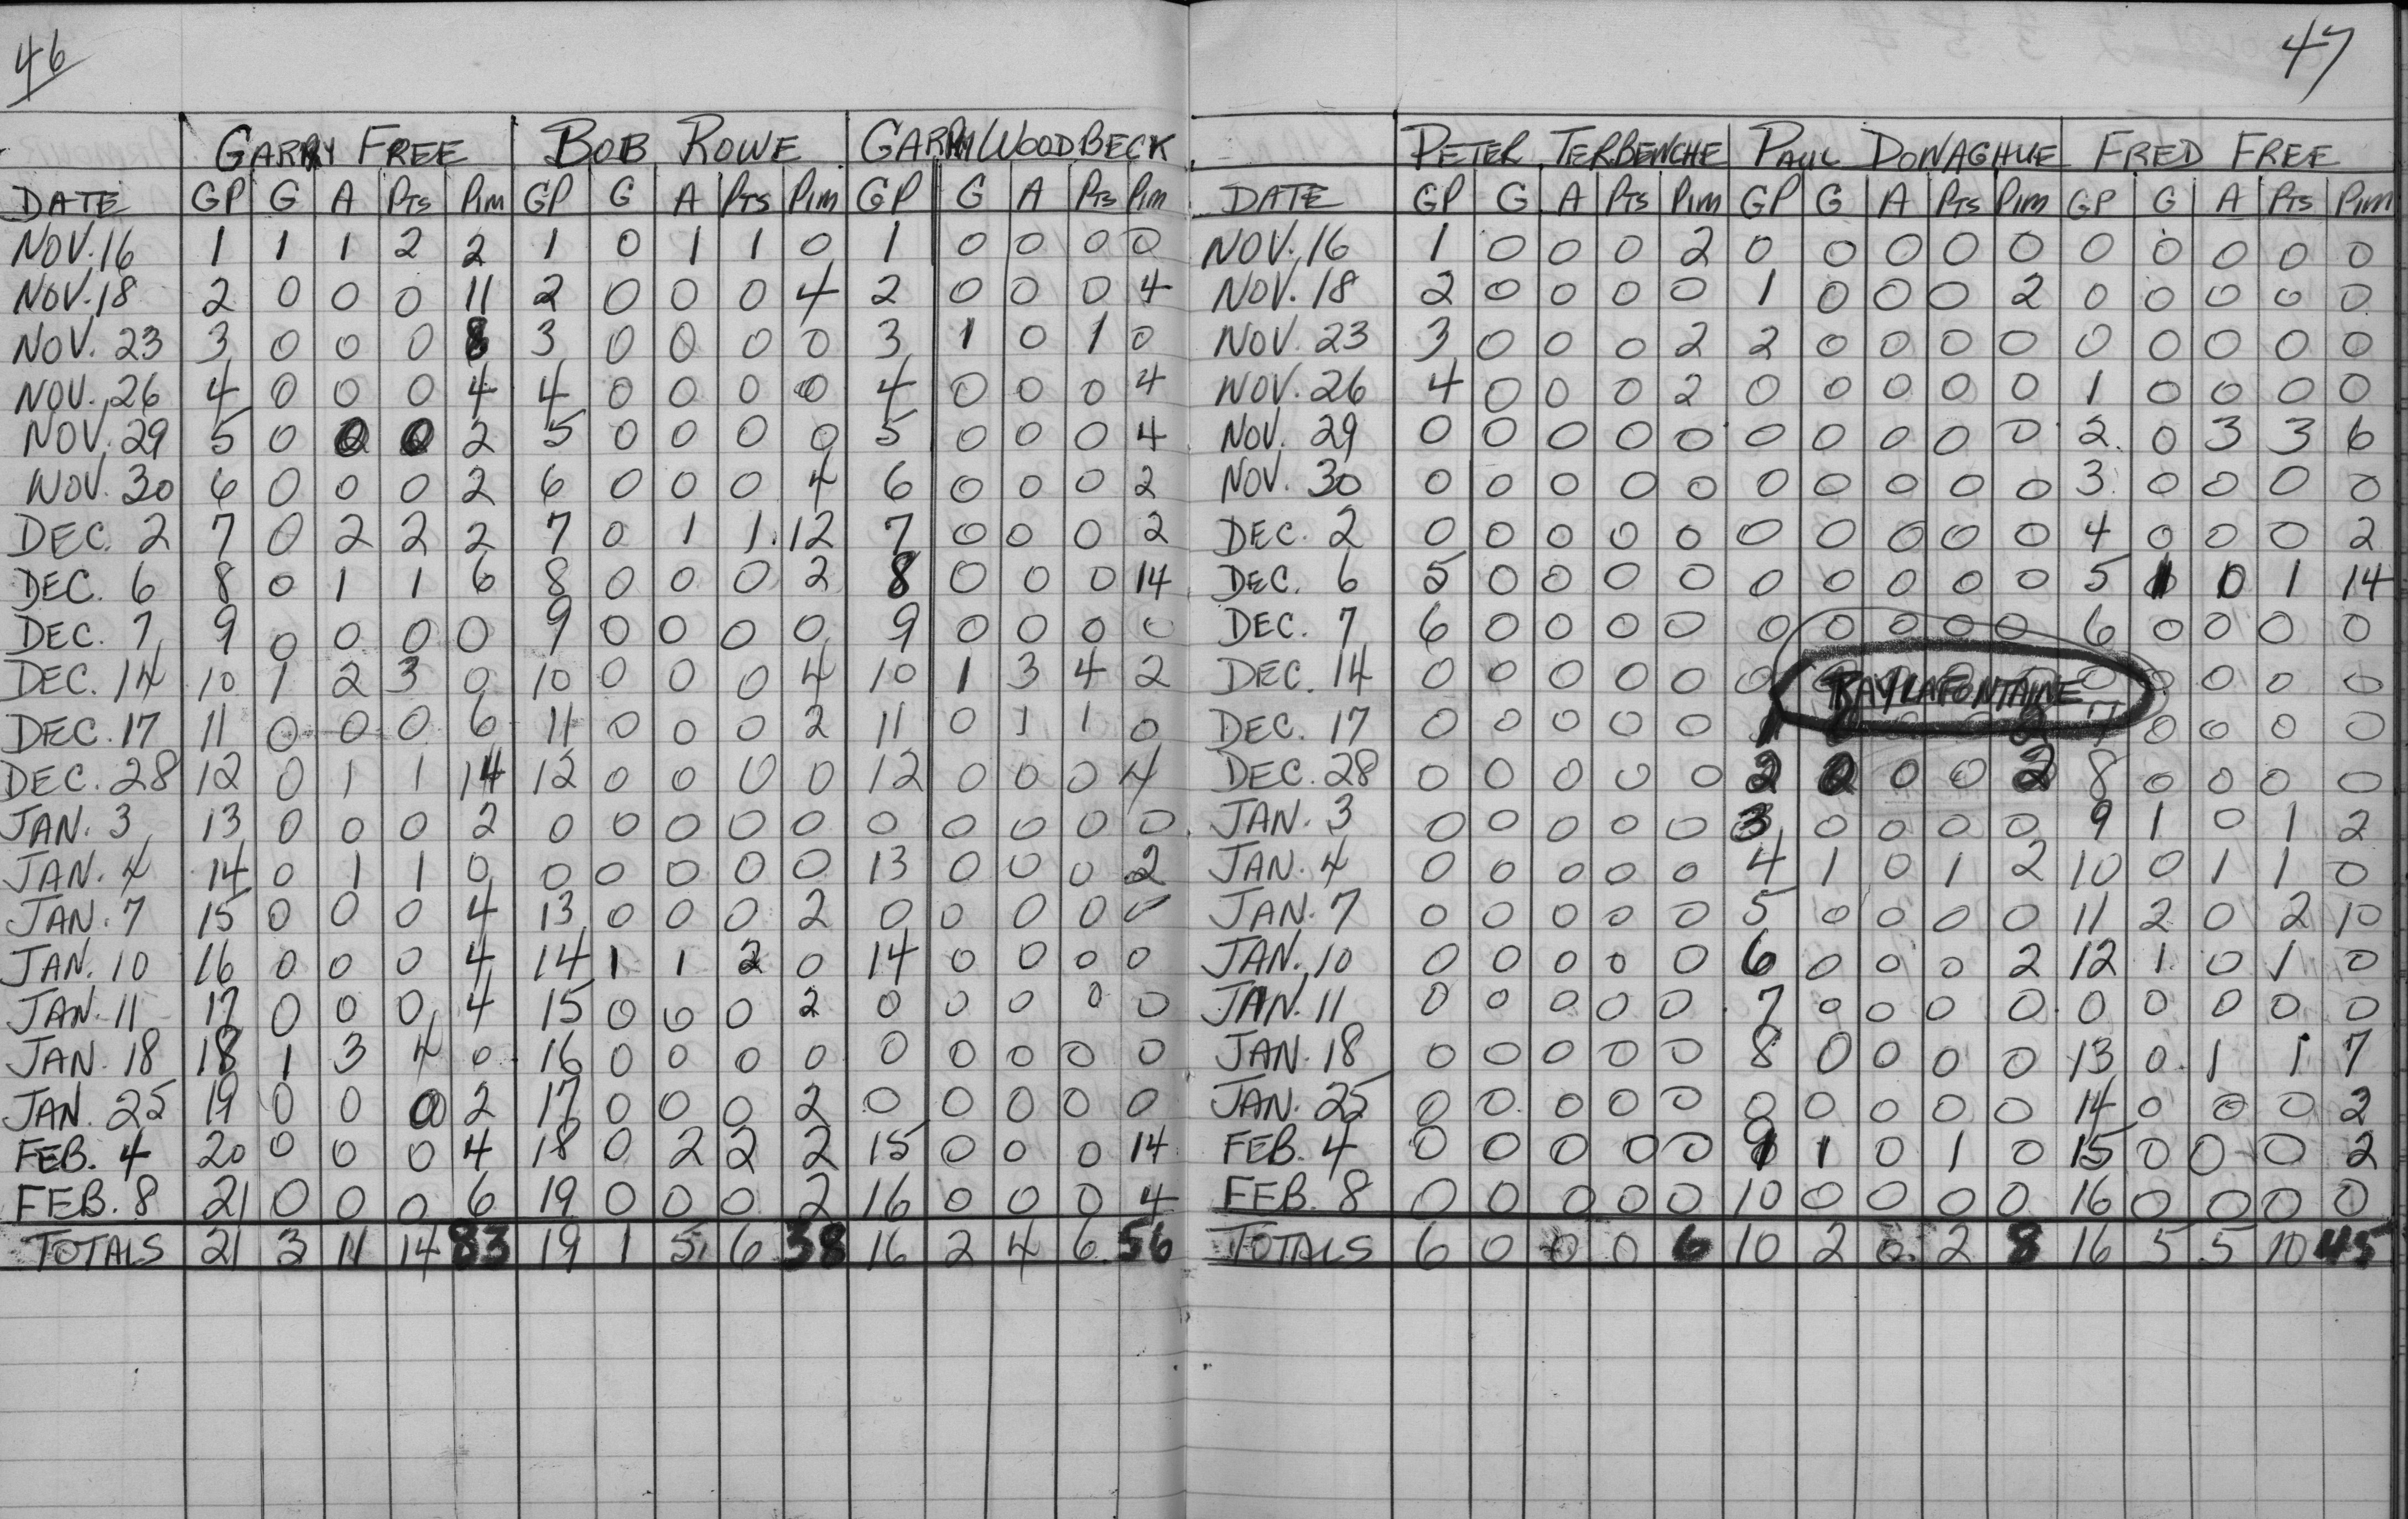 46
GARRY FREE BOB ROWE GARRY WOODBECK
DATE GP G A PTS PIM GP G A PTS PIM GP G A PTS PIM
NOV. 16 1 1 1 2 2 1 0 1 1 0 1 0 0 0 0
NOV. 18 2 0 0 0 11 2 0 0 0 4 2 0 0 0 4
NOV. 23 3 0 0 0 8 3 0 0 0 0 3 1 0 1 0
NOV. 26 4 0 0 0 4 4 0 0 0 0 4 0 0 0 4
NOV. 29 5 0 0 0 2 5 0 0 0 0 5 0 0 0 4
NOV. 30 6 0 0 0 2 6 0 0 0 4 6 0 0 0 2
DEC. 2 7 0 2 2 2 7 0 1 1 12 7 0 0 0 2
DEC. 6 8 0 1 1 6 8 0 0 0 2 8 0 0 0 14
DEC. 7 9 0 0 0 0 9 0 0 0 0 9 0 0 0 0
DEC. 14 10 1 2 3 0 10 0 0 0 4 10 1 3 4 2
DEC. 17 11 0 0 0 6 11 0 0 0 2 11 0 1 1 0
DEC. 28 12 0 1 1 14 12 0 0 0 0 12 0 0 0 4
JAN. 3 13 0 0 0 2 0 0 0 0 0 0 0 0 0 0
JAN. 4 14 0 1 1 0 0 0 0 0 0 13 0 0 0 2
JAN. 7 15 0 0 0 4 13 0 0 0 2 0 0 0 0 0
JAN. 10 16 0 0 0 4 14 1 1 2 0 14 0 0 0 0
JAN. 11 17 0 0 0 4 15 0 0 0 2 0 0 0 0 0
JAN. 18 18 1 3 4 0 16 0 0 0 0 0 0 0 0 0
JAN. 25 19 0 0 0 2 17 0 0 0 2 0 0 0 0 0
FEB. 4 20 0 0 0 4 18 0 2 2 2 15 0 0 0 14
FEB. 8 21 0 0 0 6 19 0 0 0 2 16 0 0 0 4
TOTALS 21 3 11 14 83 19 1 5 6 38 16 2 4 6 56
47
PETER TERBENCHE PAUL DONAGHUE FRED FREE
DATE GP G A PTS PIM GP G A PTS PIM GP G A PTS PIM
NOV. 16 1 0 0 0 2 0 0 0 0 0 0 0 0 0 0
NOV. 18 2 0 0 0 0 1 0 0 0 2 0 0 0 0 0
NOV. 23 3 0 0 0 2 2 0 0 0 0 0 0 0 0 0
NOV. 26 4 0 0 0 2 0 0 0 0 0 1 0 0 0 0
NOV. 29 0 0 0 0 0 0 0 0 0 0 2 0 3 3 6
NOV. 30 0 0 0 0 0 0 0 0 0 0 3 0 0 0 0
DEC. 2 0 0 0 0 0 0 0 0 0 0 4 0 0 0 2
DEC. 6 5 0 0 0 0 0 0 0 0 0 5 1 0 1 14
DEC. 7 6 0 0 0 0 0 0 0 0 0 6 0 0 0 0
DEC. 14 0 0 0 0 0 0 RAY LAFONTAINE 0 0 0 0
DEC. 17 0 0 0 0 0 1 7 0 0 0 0
DEC. 28 0 0 0 0 0 2 0 0 2 8 0 0 0 0
JAN. 3 0 0 0 0 0 3 0 0 0 0 9 1 0 1 2
JAN. 4 0 0 0 0 0 4 1 0 1 2 10 0 1 1 0
JAN. 7 0 0 0 0 0 5 0 0 0 0 11 2 0 2 10
JAN. 10 0 0 0 0 0 6 0 0 0 2 12 1 0 1 0
JAN. 11 0 0 0 0 0 7 0 0 0 0 0 0 0 0 0
JAN. 18 0 0 0 0 0 8 0 0 0 0 13 0 1 1 7
JAN. 25 0 0 0 0 0 0 0 0 0 0 14 0 0 0 2
FEB. 4 0 0 0 0 0 9 1 0 1 0 15 0 0 0 2
FEB. 8 0 0 0 0 0 10 0 0 0 0 16 0 0 0 0
TOTALS 6 0 0 0 6 10 2 0 2 8 16 5 5 10 45